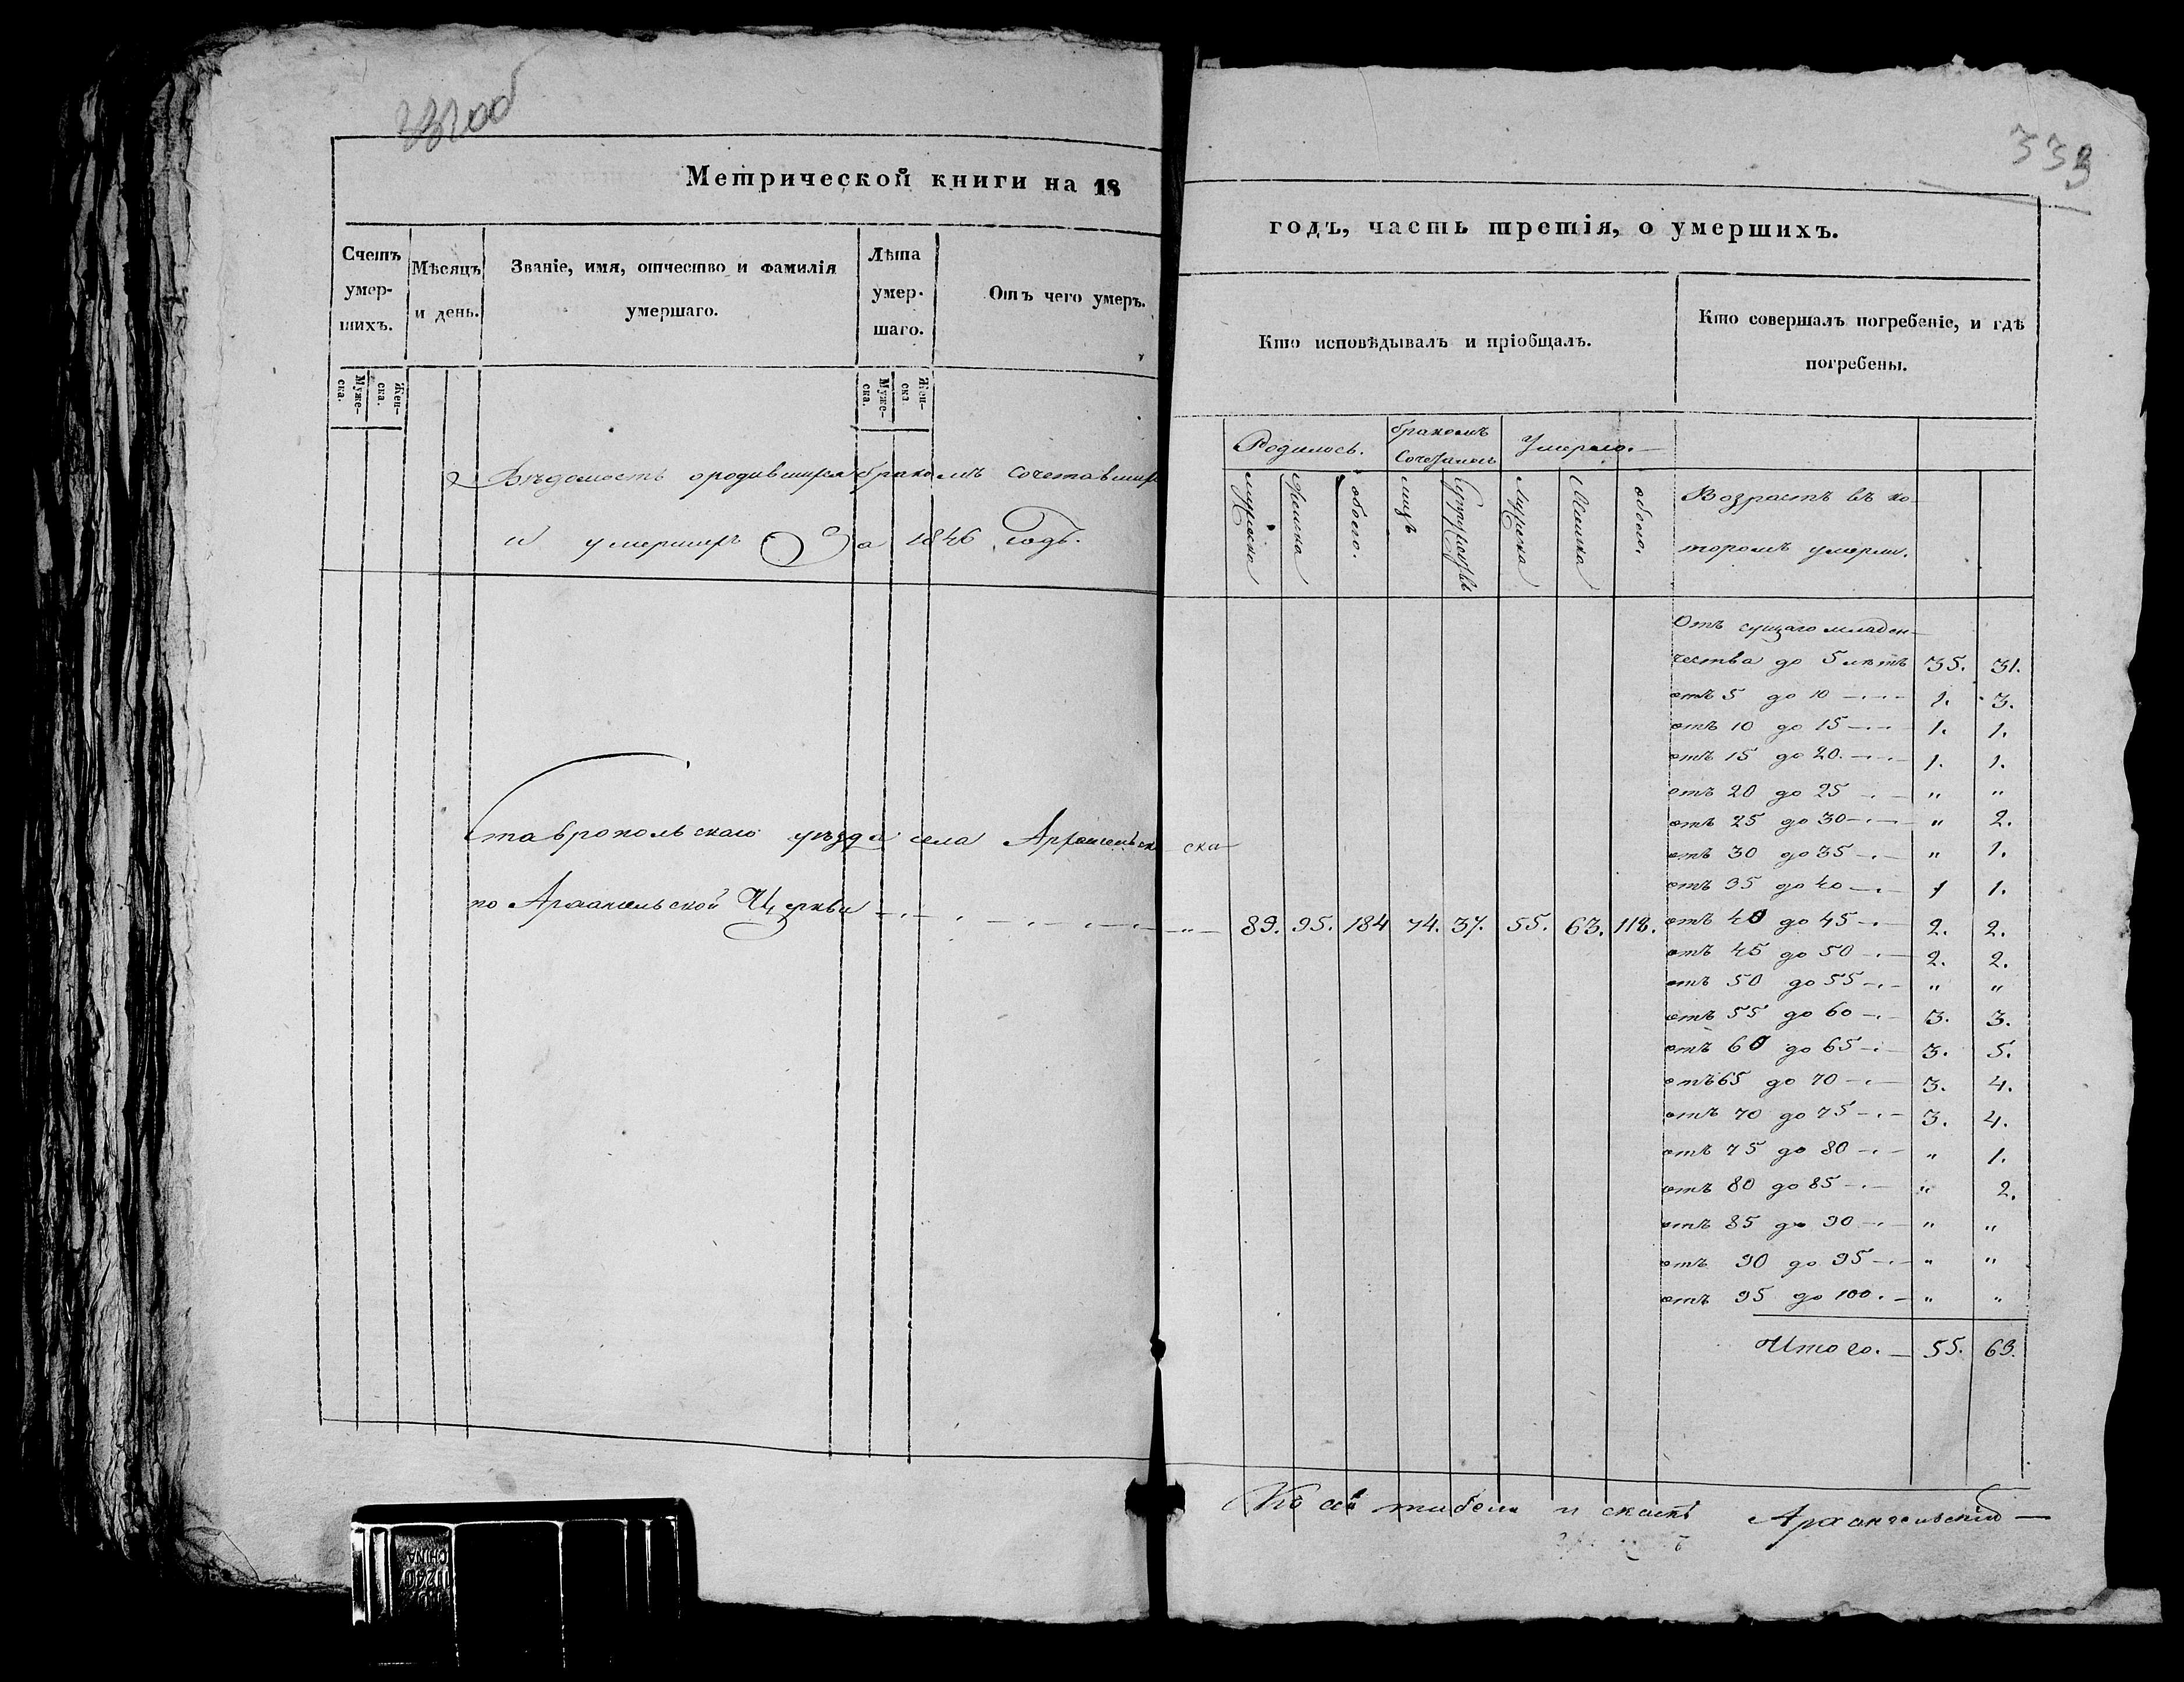 333
Метрической книги на 18
годъ, часть третія, о умершихъ.
Счетъ умер-шихъ.
Мѣсяцъ и день.
Званіе, имя, отчество и фамилія
умершаго.
Лѣта умер-шаго.
Отъ чего умеръ.
Кто исповѣдывалъ и пріобщалъ.
Кто совершалъ погребеніе, и гдѣ
погребены.
Муже-ска.
Жен-ска.
Муже-ска.
Жен-ска
Вѣдомость ородившихся бракомъ сочетавших
и умершихъ За 1846 годъ.
Родилось.
бракомъ
Умерло.
мужска
женска
обоего.
лицъ
Супружествъ
мужска
женска
обоего.
Возрастъ въ ко-
торомъ умерли.
Ставропольскаго уѣзда села Архангельск ска
по Архангельской Церкви
89. 95. 184 74. 37. 55. 63. 118.
Отъ сущаго младен-
чества до 5 лѣтъ 35. 31.
отъ 5 до 10 1. 3.
отъ 10 до 15 1. 1.
отъ 15 до 20. 1. 1.
отъ 20 до 25 " "
отъ 25 до 30 " 2.
отъ 30 до 35 " 1.
отъ 35 до 40 1 1.
отъ 40 до 45 2. 2.
отъ 45 до 50 2. 2.
отъ 50 до 55 " "
отъ 55 до 60 3. 3.
отъ 60 до 65 3. 5.
отъ 65 до 70 3. 4.
отъ 70 до 75 3. 4.
отъ 75 до 80 " 1.
отъ 80 до 85 " 2.
отъ 85 до 90 " "
отъ 90 до 95 " "
отъ 95 до 100. " "
Итого. 55. 63.
Архангельскій
CHINA